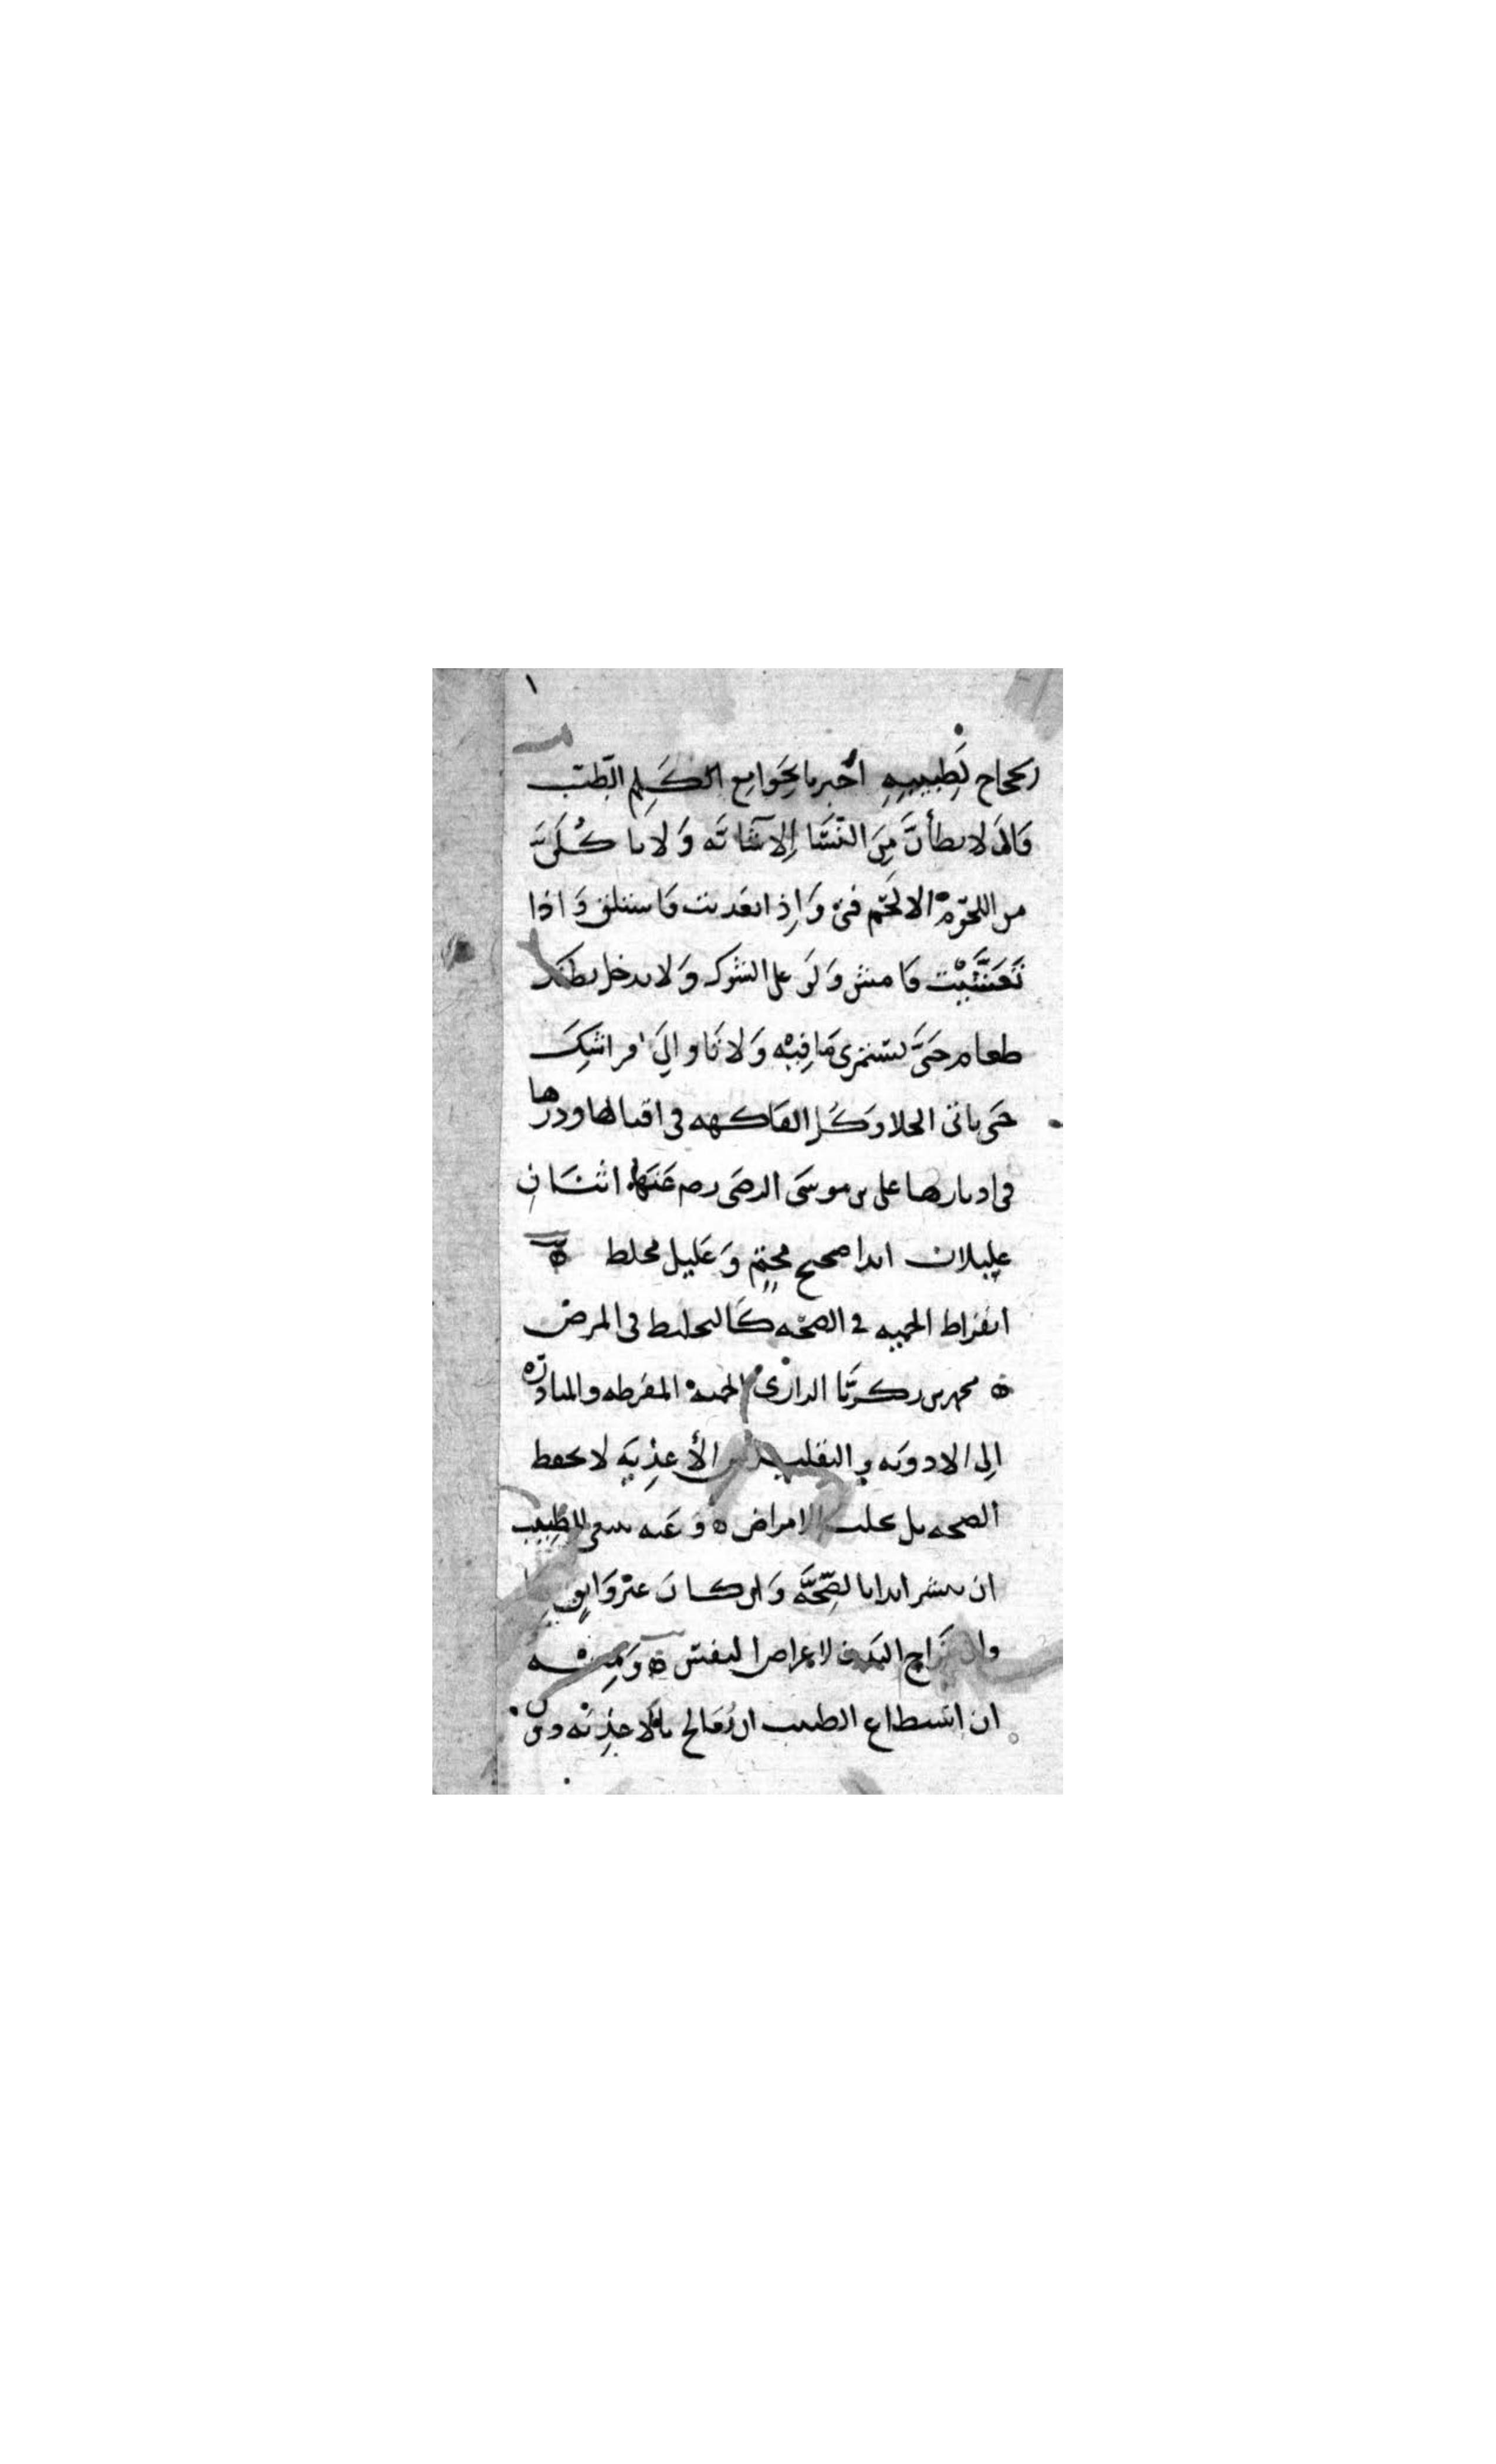 ١
الحجاح لَطِبيبِهِ اخبرنا بِجَوامِع الكَلِم الطِّب
قَالَ لا تطأنَّ مِنَ النّسَّا اِلا شَابَّه وَلا تاكُلَنَّ
من اللحوْم الا لَحم فتى وَاِذا تغديت فاستلق وَاذا
تَعَشَّيْت فامش وَلَو على الشوك وَلا تدخل بطنك
طعام حَتَّى تستمرى مَا فِيْه وَلا تَاو اِلَى فراشِكَ
حَتى تاتى الخلا وَكُل الفَاكهه فى اقبالها وذرها
فى ادبارها على بن موسَى الرضَى رضى عَنهَا اثنَان
عليلان ابدا صحيح محتمٍ وَعَليل مخلط ه
افراط الحميه فى الصحّه كَالتخليط فى المرض
ه محمد بن زكريّا الرازى الحميه المفرطه والمبادرَه
اِلى الادويَه والتقلب الأغذِيَه لا يحفظ
الصحه بل يجلب الامراض ه وَعَنه ينبغى للطَّبِيب
ان يبشر ابدا بالصِّحَّه وَان كان غير وَاثِقٍ
مزَاج البَدن لاعراض النفس ه وَمِنْه
ان استطاع الطبيب ان يُعَالج بالاغذِيَه دون